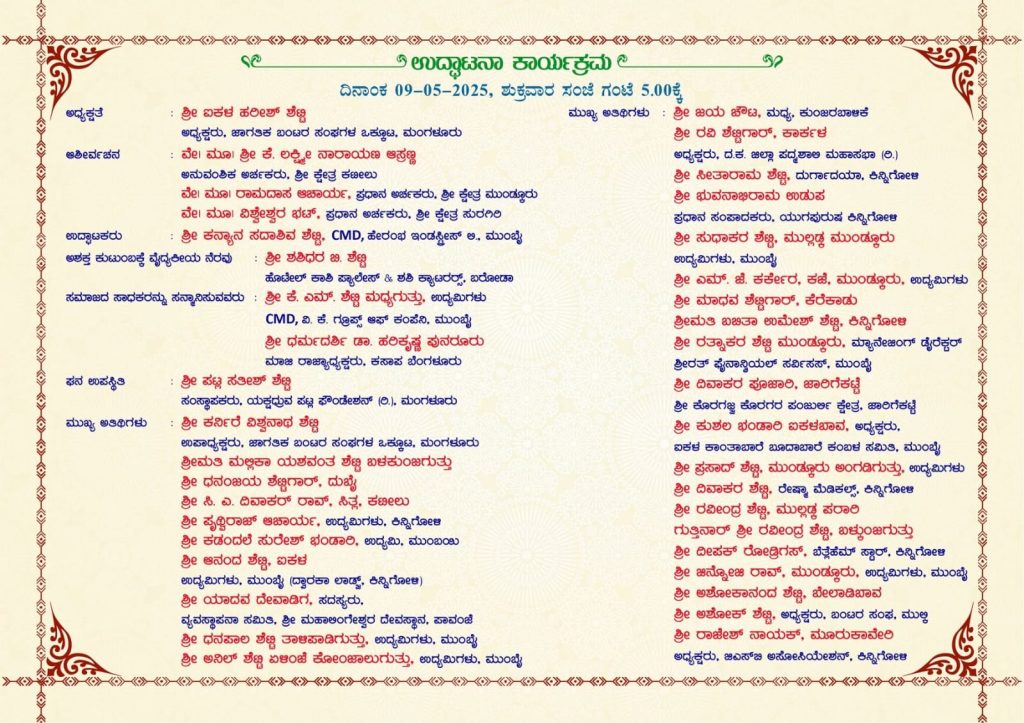 ಉದ್ಘಾಟನಾ ಕಾರ್ಯಕ್ರಮ
ದಿನಾಂಕ 09-05-2025, ಶುಕ್ರವಾರ ಸಂಜೆ ಗಂಟೆ 5.00ಕ್ಕೆ
ಅಧ್ಯಕ್ಷತೆ : ಶ್ರೀ ಐಕಳ ಹರೀಶ್ ಶೆಟ್ಟಿ
ಅಧ್ಯಕ್ಷರು, ಜಾಗತಿಕ ಬಂಟರ ಸಂಘಗಳ ಒಕ್ಕೂಟ, ಮಂಗಳೂರು
ಆಶೀರ್ವಚನ : ವೇ। ಮೂ। ಶ್ರೀ ಕೆ. ಲಕ್ಷ್ಮೀ ನಾರಾಯಣ ಆಸ್ರಣ್ಣ
ಅನುವಂಶಿಕ ಅರ್ಚಕರು, ಶ್ರೀ ಕ್ಷೇತ್ರ ಕಟೀಲು
ವೇ। ಮೂ। ರಾಮದಾಸ ಆಚಾರ್ಯ, ಪ್ರಧಾನ ಅರ್ಚಕರು, ಶ್ರೀ ಕ್ಷೇತ್ರ ಮುಂಡ್ಕೂರು
ವೇ। ಮೂ। ವಿಶ್ವೇಶ್ವರ ಭಟ್, ಪ್ರಧಾನ ಅರ್ಚಕರು, ಶ್ರೀ ಕ್ಷೇತ್ರ ಸುರಗಿರಿ
ಉದ್ಘಾಟಕರು : ಶ್ರೀ ಕನ್ಯಾನ ಸದಾಶಿವ ಶೆಟ್ಟಿ, CMD, ಹೇರಂಭ ಇಂಡಸ್ಟ್ರೀಸ್ ಲಿ., ಮುಂಬೈ
ಅಶಕ್ತ ಕುಟುಂಬಕ್ಕೆ ವೈದ್ಯಕೀಯ ನೆರವು : ಶ್ರೀ ಶಶಿಧರ ಬಿ. ಶೆಟ್ಟಿ
ಹೊಟೇಲ್ ಕಾಶಿ ಪ್ಯಾಲೇಸ್ & ಶಶಿ ಕ್ಯಾಟರರ್ಸ್, ಬರೋಡಾ
ಸಮಾಜದ ಸಾಧಕರನ್ನು ಸನ್ಮಾನಿಸುವವರು : ಶ್ರೀ ಕೆ. ಎಮ್. ಶೆಟ್ಟಿ ಮಧ್ಯಗುತ್ತು, ಉದ್ಯಮಿಗಳು
CMD, ವಿ. ಕೆ. ಗ್ರೂಪ್ಸ್ ಆಫ್ ಕಂಪೆನಿ, ಮುಂಬೈ
ಶ್ರೀ ಧರ್ಮದರ್ಶಿ ಡಾ. ಹರಿಕೃಷ್ಣ ಪುನರೂರು
ಮಾಜಿ ರಾಜ್ಯಾಧ್ಯಕ್ಷರು, ಕಸಾಪ ಬೆಂಗಳೂರು
ಘನ ಉಪಸ್ಥಿತಿ : ಶ್ರೀ ಪಟ್ಲ ಸತೀಶ್ ಶೆಟ್ಟಿ
ಸಂಸ್ಥಾಪಕರು, ಯಕ್ಷಧ್ರುವ ಪಟ್ಲ ಫೌಂಡೇಶನ್ (ರಿ.), ಮಂಗಳೂರು
ಮುಖ್ಯ ಅತಿಥಿಗಳು : ಶ್ರೀ ಕರ್ನಿರೆ ವಿಶ್ವನಾಥ ಶೆಟ್ಟಿ
ಉಪಾಧ್ಯಕ್ಷರು, ಜಾಗತಿಕ ಬಂಟರ ಸಂಘಗಳ ಒಕ್ಕೂಟ, ಮಂಗಳೂರು
ಶ್ರೀಮತಿ ಮಲ್ಲಿಕಾ ಯಶವಂತ ಶೆಟ್ಟಿ ಬಳಕುಂಜಗುತ್ತು
ಶ್ರೀ ಧನಂಜಯ ಶೆಟ್ಟಿಗಾರ್, ದುಬೈ
ಶ್ರೀ ಸಿ. ಎ. ದಿವಾಕರ್ ರಾವ್, ಸಿತ್ಲ, ಕಟೀಲು
ಶ್ರೀ ಪೃಥ್ವಿರಾಜ್ ಆಚಾರ್ಯ, ಉದ್ಯಮಿಗಳು, ಕಿನ್ನಿಗೋಳಿ
ಶ್ರೀ ಕಡಂದಲೆ ಸುರೇಶ್ ಭಂಡಾರಿ, ಉದ್ಯಮಿ, ಮುಂಬಯಿ
ಶ್ರೀ ಆನಂದ ಶೆಟ್ಟಿ, ಐಕಳ
ಉದ್ಯಮಿಗಳು, ಮುಂಬೈ (ದ್ವಾರಕಾ ಲಾಡ್ಜ್, ಕಿನ್ನಿಗೋಳಿ)
ಶ್ರೀ ಯಾದವ ದೇವಾಡಿಗ, ಸದಸ್ಯರು,
ವ್ಯವಸ್ಥಾಪನಾ ಸಮಿತಿ, ಶ್ರೀ ಮಹಾಲಿಂಗೇಶ್ವರ ದೇವಸ್ಥಾನ, ಪಾವಂಜೆ
ಶ್ರೀ ಧನಪಾಲ ಶೆಟ್ಟಿ ತಾಳಿಪಾಡಿಗುತ್ತು, ಉದ್ಯಮಿಗಳು, ಮುಂಬೈ
ಶ್ರೀ ಅನಿಲ್ ಶೆಟ್ಟಿ ಏಳಿಂಜೆ ಕೋಂಜಾಲುಗುತ್ತು, ಉದ್ಯಮಿಗಳು, ಮುಂಬೈ
ಮುಖ್ಯ ಅತಿಥಿಗಳು : ಶ್ರೀ ಜಯ ಚೌಟ, ಮಧ್ಯ, ಕುಂಜರಬಾಳಿಕೆ
ಶ್ರೀ ರವಿ ಶೆಟ್ಟಿಗಾರ್, ಕಾರ್ಕಳ
ಅಧ್ಯಕ್ಷರು, ದ.ಕ. ಜಿಲ್ಲಾ ಪದ್ಮಶಾಲಿ ಮಹಾಸಭಾ (ರಿ.)
ಶ್ರೀ ಸೀತಾರಾಮ ಶೆಟ್ಟಿ, ದುರ್ಗಾದಯಾ, ಕಿನ್ನಿಗೋಳಿ
ಶ್ರೀ ಭುವನಾಭಿರಾಮ ಉಡುಪ
ಪ್ರಧಾನ ಸಂಪಾದಕರು, ಯುಗಪುರುಷ ಕಿನ್ನಿಗೋಳಿ
ಶ್ರೀ ಸುಧಾಕರ ಶೆಟ್ಟಿ, ಮುಲ್ಲಡ್ಕ ಮುಂಡ್ಕೂರು
ಉದ್ಯಮಿಗಳು, ಮುಂಬೈ
ಶ್ರೀ ಎಮ್. ಜೆ. ಕರ್ಕೇರ, ಕಜೆ, ಮುಂಡ್ಕೂರು, ಉದ್ಯಮಿಗಳು
ಶ್ರೀ ಮಾಧವ ಶೆಟ್ಟಿಗಾರ್, ಕೆರೆಕಾಡು
ಶ್ರೀಮತಿ ಬಬಿತಾ ಉಮೇಶ್ ಶೆಟ್ಟಿ, ಕಿನ್ನಿಗೋಳಿ
ಶ್ರೀ ರತ್ನಾಕರ ಶೆಟ್ಟಿ ಮುಂಡ್ಕೂರು, ಮ್ಯಾನೇಜಿಂಗ್ ಡೈರೆಕ್ಟರ್
ಶ್ರೀರತ್ ಫೈನಾನ್ಶಿಯಲ್ ಸರ್ವಿಸಸ್, ಮುಂಬೈ
ಶ್ರೀ ದಿವಾಕರ ಪೂಜಾರಿ, ಜಾರಿಗೆಕಟ್ಟೆ
ಶ್ರೀ ಕೊರಗಜ್ಜ ಕೊರಗರ ಪಂಜುರ್ಲಿ ಕ್ಷೇತ್ರ, ಜಾರಿಗೆಕಟ್ಟೆ
ಶ್ರೀ ಕುಶಲ ಭಂಡಾರಿ ಐಕಳಬಾವ, ಅಧ್ಯಕ್ಷರು,
ಐಕಳ ಕಾಂತಾಬಾರೆ ಬೂದಾಬಾರೆ ಕಂಬಳ ಸಮಿತಿ, ಮುಂಬೈ
ಶ್ರೀ ಪ್ರಸಾದ್ ಶೆಟ್ಟಿ, ಮುಂಡ್ಕೂರು ಅಂಗಡಿಗುತ್ತು, ಉದ್ಯಮಿಗಳು
ಶ್ರೀ ದಿವಾಕರ ಶೆಟ್ಟಿ, ರೇಷ್ಮಾ ಮೆಡಿಕಲ್ಸ್, ಕಿನ್ನಿಗೋಳಿ
ಶ್ರೀ ರವೀಂದ್ರ ಶೆಟ್ಟಿ, ಮುಲ್ಲಡ್ಕ ಪರಾರಿ
ಗುತ್ತಿನಾರ್ ಶ್ರೀ ರವೀಂದ್ರ ಶೆಟ್ಟಿ, ಬಳ್ಕುಂಜಗುತ್ತು
ಶ್ರೀ ದೀಪಕ್ ರೋಡ್ರಿಗಸ್, ಬೆತ್ಲೆಹೆಮ್ ಸ್ಟಾರ್, ಕಿನ್ನಿಗೋಳಿ
ಶ್ರೀ ಜಿನ್ನೋಜಿ ರಾವ್, ಮುಂಡ್ಕೂರು, ಉದ್ಯಮಿಗಳು, ಮುಂಬೈ
ಶ್ರೀ ಅಶೋಕಾನಂದ ಶೆಟ್ಟಿ, ಬೇಲಾಡಿಬಾವ
ಶ್ರೀ ಅಶೋಕ್ ಶೆಟ್ಟಿ, ಅಧ್ಯಕ್ಷರು, ಬಂಟರ ಸಂಘ, ಮುಲ್ಕಿ
ಶ್ರೀ ರಾಜೇಶ್ ನಾಯಕ್, ಮೂರುಕಾವೇರಿ
ಅಧ್ಯಕ್ಷರು, ಜಿಎಸ್‌ಬಿ ಅಸೋಸಿಯೇಶನ್, ಕಿನ್ನಿಗೋಳಿ